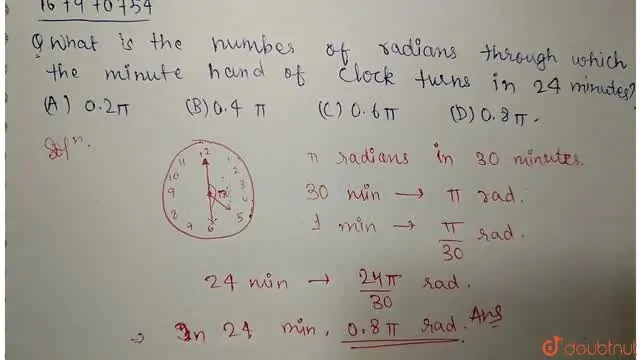 16+9+0+54
Q What is the number of radians through which
the minute hand of clock turns in 24 minutes?
(A) 0.2π (B) 0.4 π (C) 0.6π (D) 0.8π.
Solⁿ.
12
11 1
10 2
9 3
8 4
7 6 5
π radians in 30 minutes.
30 min → π rad.
1 min → π/30 rad.
24 min → 24π/30 rad.
⇒ In 24 min, 0.8π rad. Ans
doubtnut